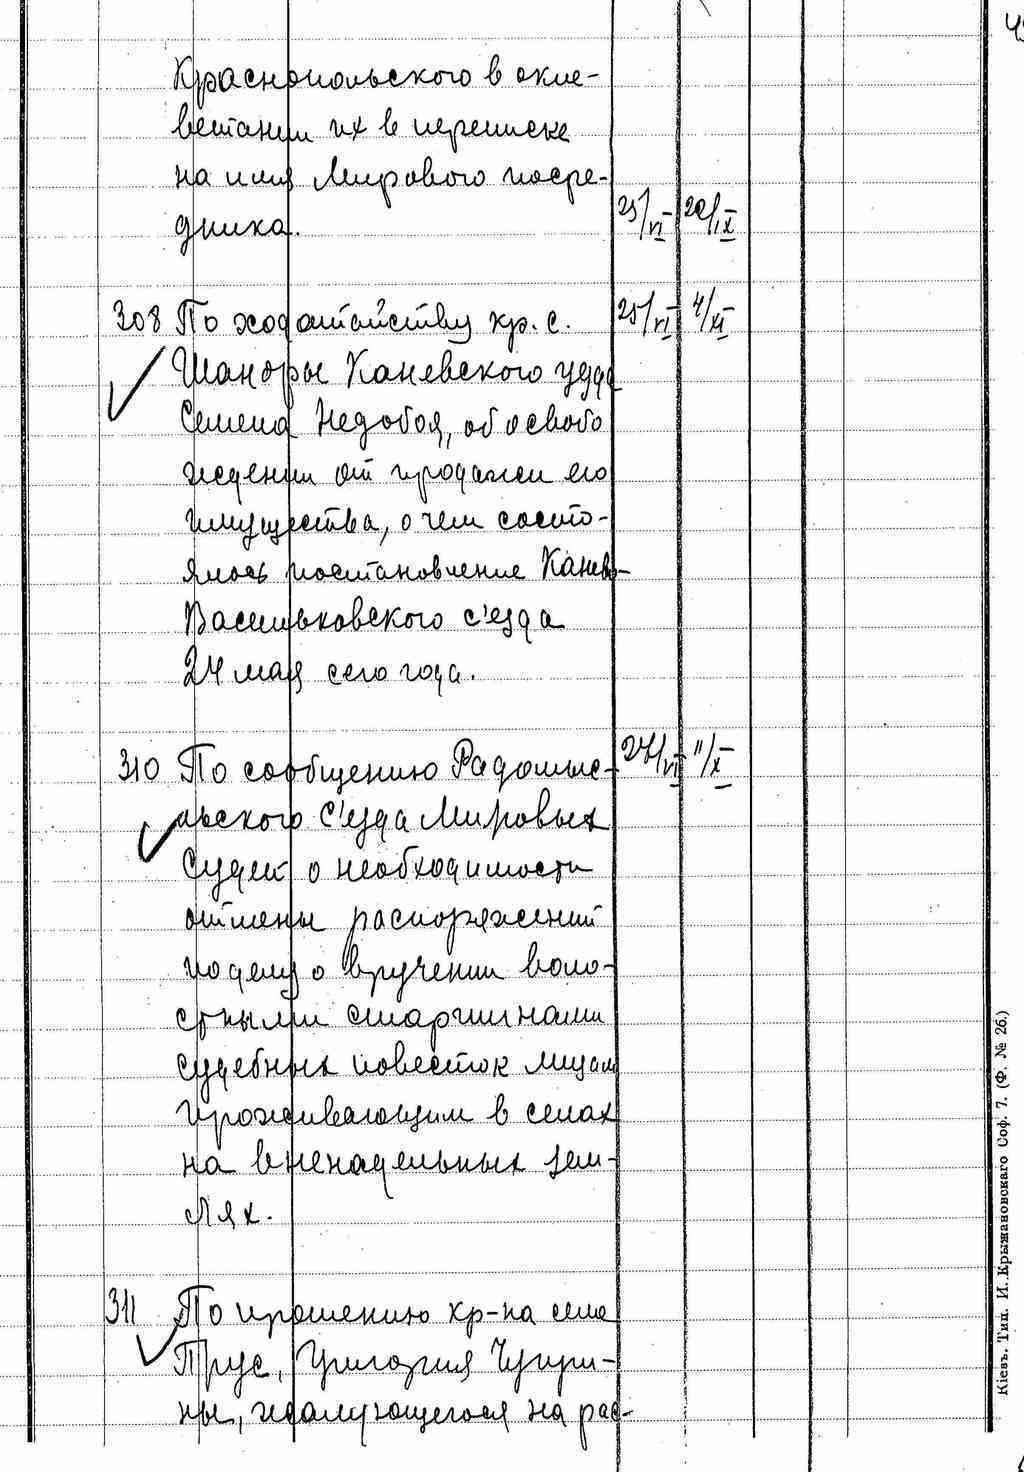 Краснопольского в окле-
ветании их в переписке
на имя Мирового посре-
дника. 25/VI 20/IX
308 По ходатайству кр. с. 25/VI 4/XI
Шандры Каневского уезда
Семена Недобоя, об освобо
ждении от продажи его
имущества, о чем состо-
ялось постановление Канев-
Васильковского с'езда
24 мая сего года.
310 По сообщению Радомыс- 27/VI 11/X
льского С'езда Мировых
Судей о необходимости
отмены распоряжений
по делу о вручении воло-
стными старшинами
судебных повесток лицам
проживающим в селах
на вненадельных зем-
лях.
311 По прошению кр-на села
Прус, Григория Чучри-
ны, жалующегося на рас-
Кіевъ. Тип. И. Крыжановскаго Соф. 7. (Ф. № 26.)